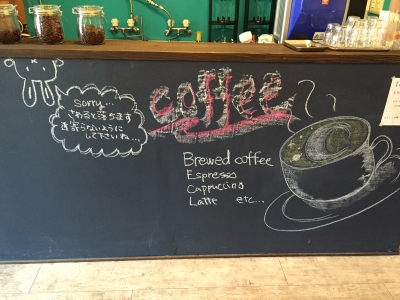 sorry...
さわると落ちます
近寄らないように
して下さいね...
coffee
Brewed coffee
Espresso
Cappuccino
Latte etc...